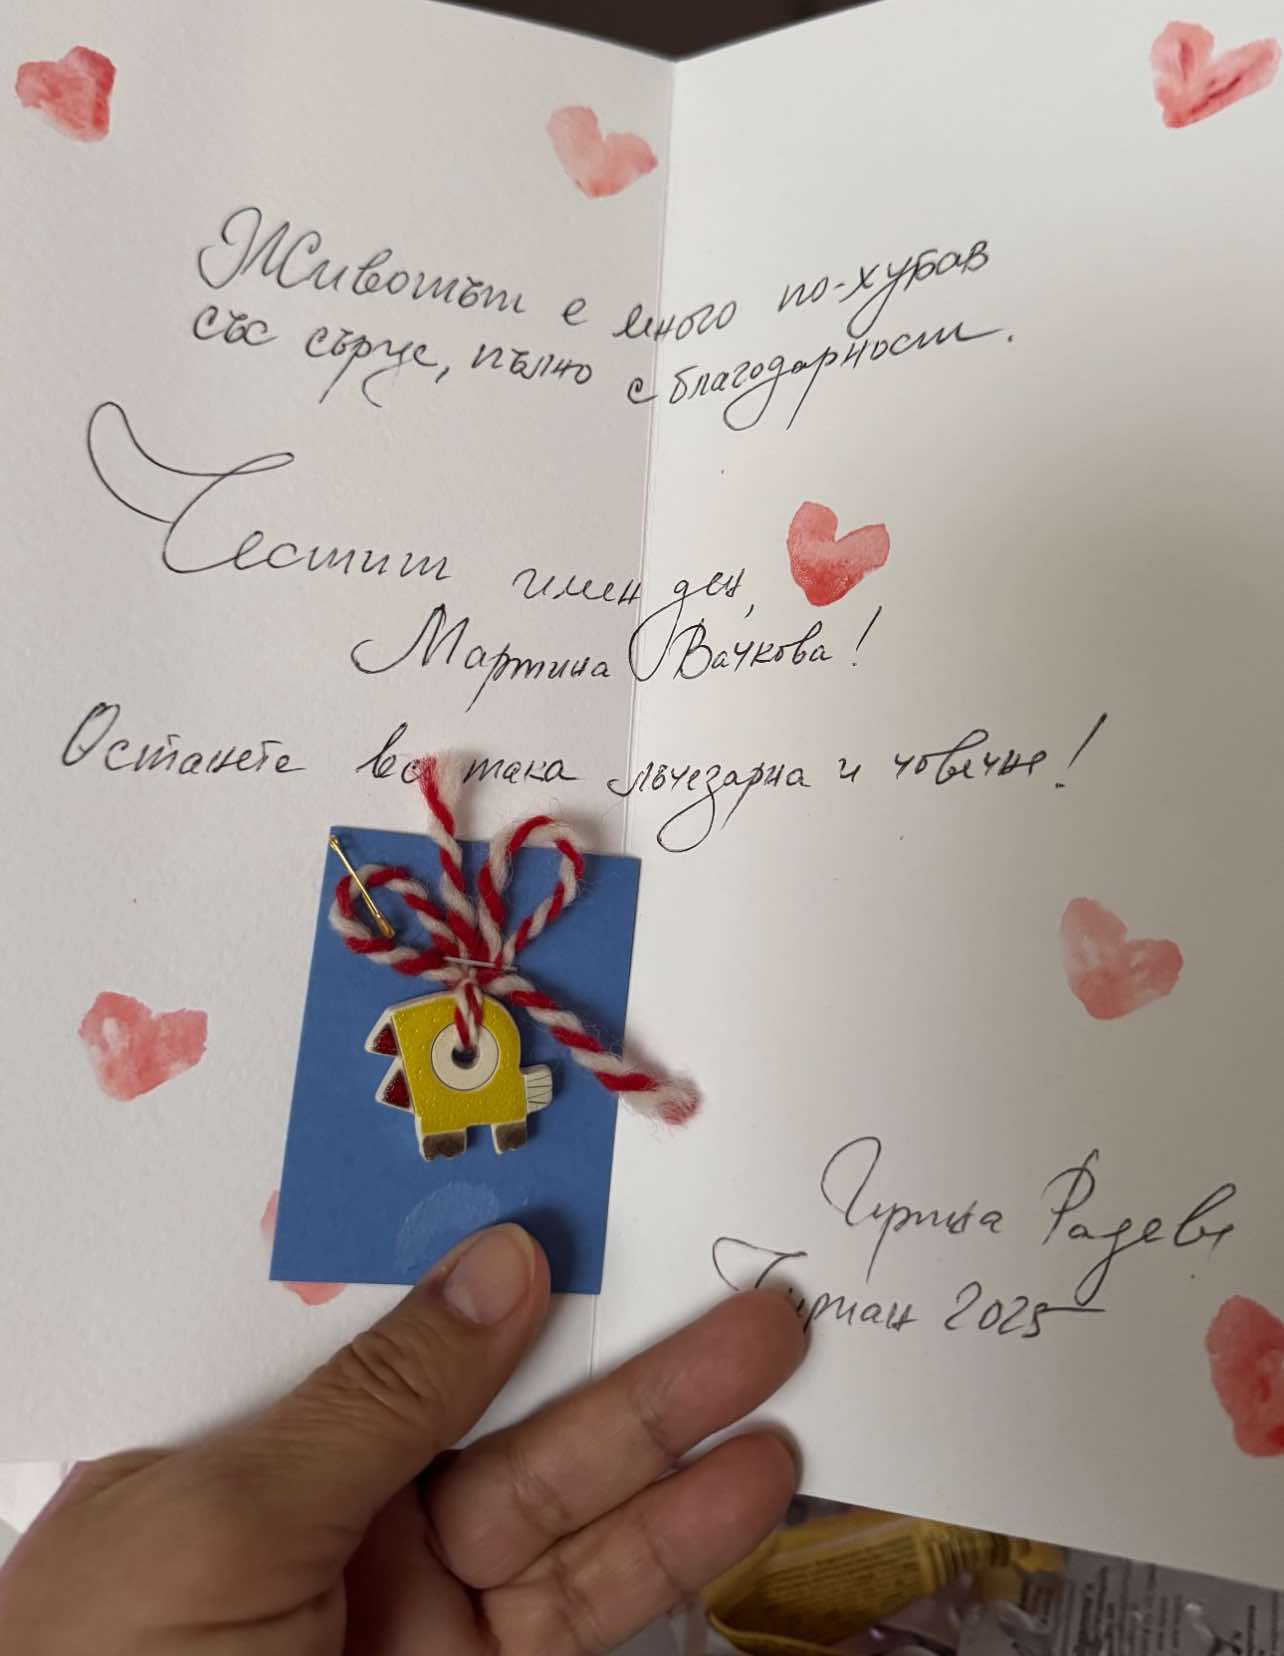 Животът е много по-хубав
със сърце, пълно с благодарност.
Честит имен ден,
Мартина Вачкова!
Останете все така лъчезарна и човечна!
Ирина Радева
2025